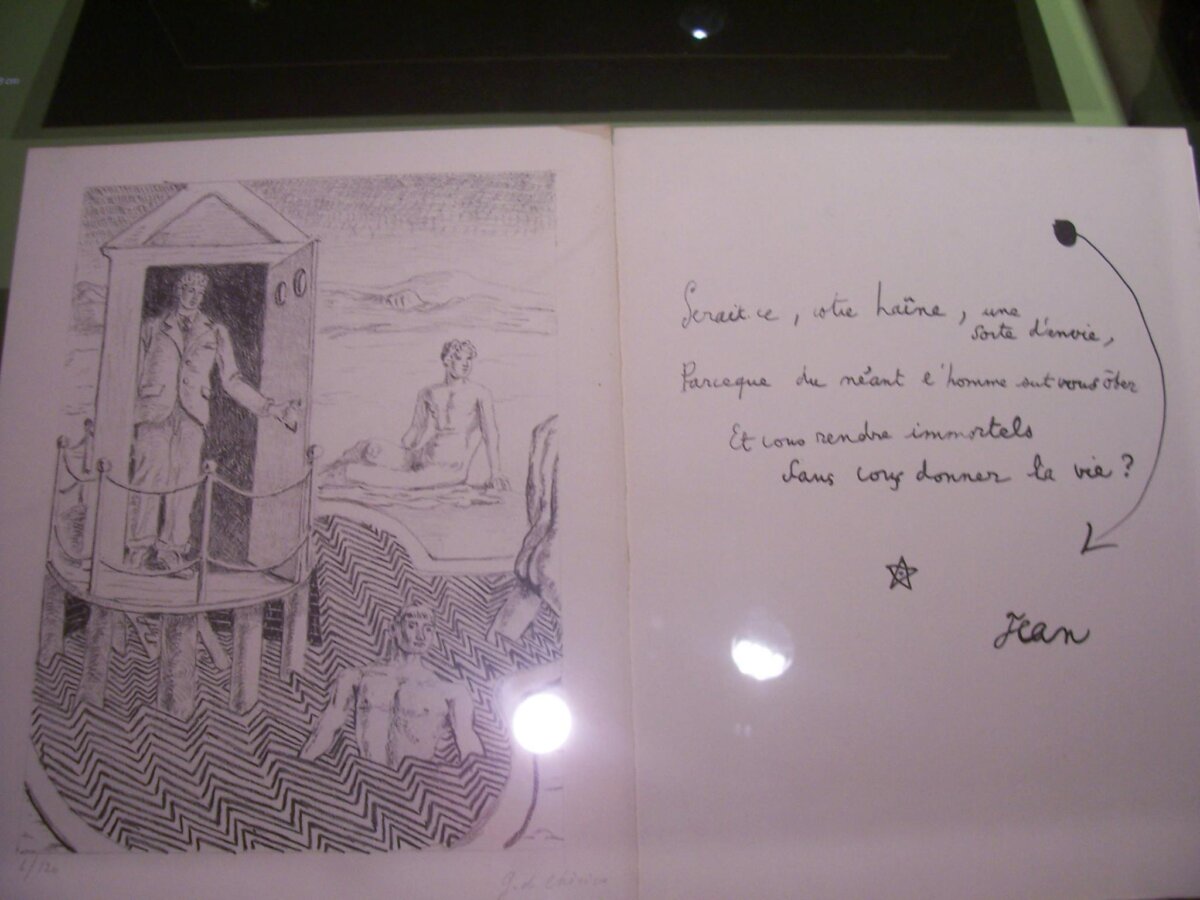 cm
Serait-ce, votre haîne, une
sorte d'envie,
Parceque du néant l'homme sut vous ôter
Et vous rendre immortels
Sans vous donner la vie?
Jean
6/120
G. de Chirico